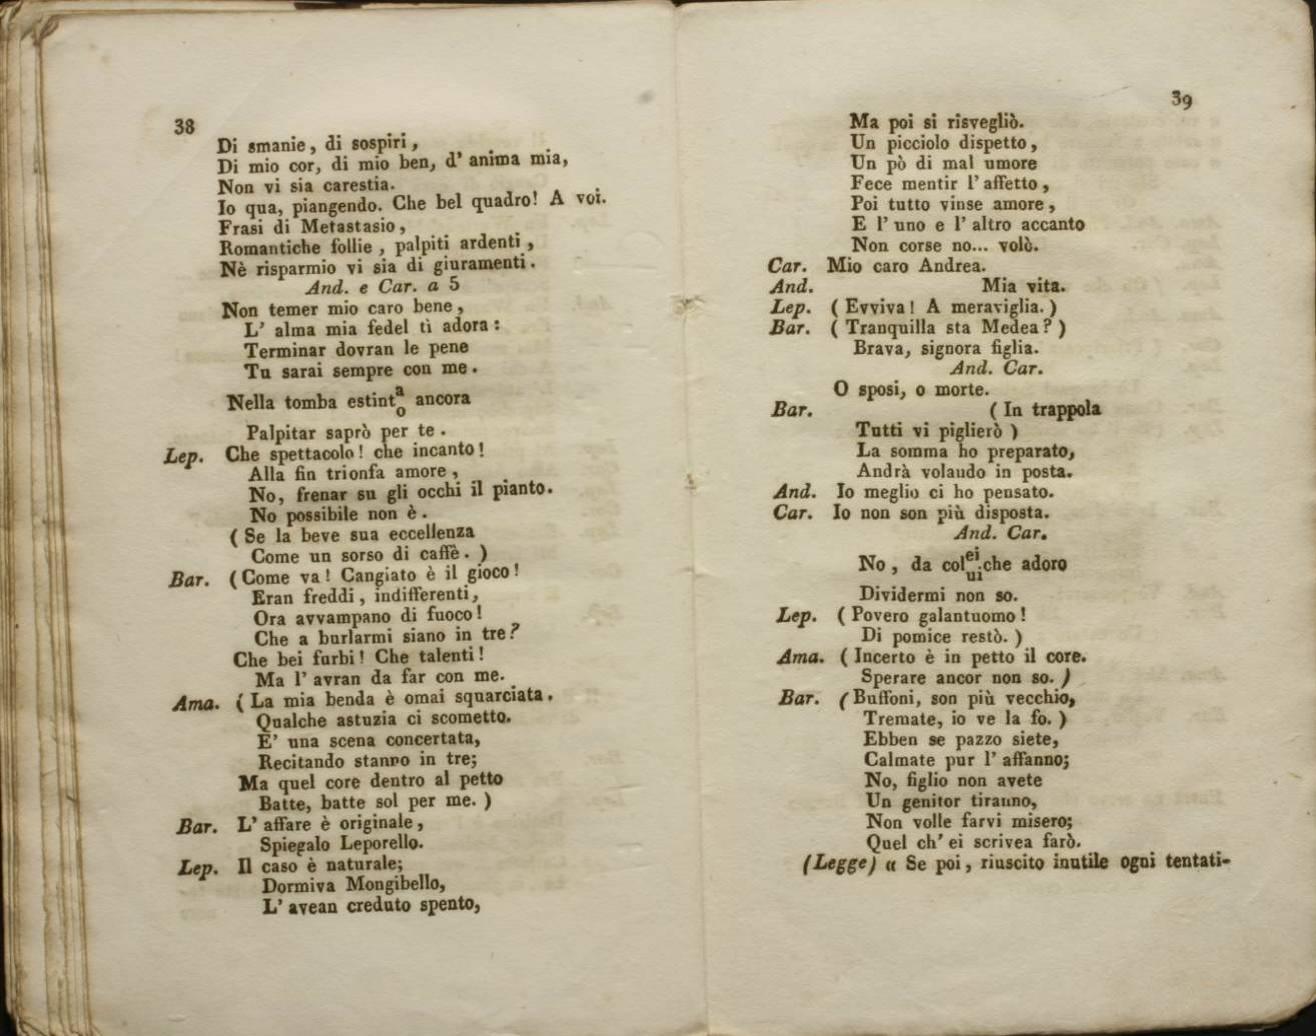 38
Di smanie, di sospiri,
Di mio cor, di mio ben, d' anima mia,
Non vi sia carestia.
Io qua, piangendo. Che bel quadro! A voi.
Frasi di Metastasio,
Romantiche follie, palpiti ardenti,
Nè risparmio vi sia di giuramenti.
And. e Car. a 5
Non temer mio caro bene,
L' alma mia fedel ti adora:
Terminar dovran le pene
Tu sarai sempre con me.
Nella tomba estint a/o ancora
Palpitar saprò per te.
Lep. Che spettacolo! che incanto!
Alla fin trionfa amore,
No, frenar su gli occhi il pianto.
No possibile non è.
(Se la beve sua eccellenza
Come un sorso di caffè.)
Bar. (Come va! Cangiato è il gioco!
Eran freddi, indifferenti,
Ora avvampano di fuoco!
Che a burlarmi siano in tre?
Che bei furbi! Che talenti!
Ma l' avran da far con me.
Ama. (La mia benda è omai squarciata.
Qualche astuzia ci scometto.
E' una scena concertata,
Recitando stanno in tre;
Ma quel core dentro al petto
Batte, batte sol per me.)
Bar. L' affare è originale,
Spiegalo Leporello.
Lep. Il caso è naturale;
Dormiva Mongibello,
L' avean creduto spento,
39
Ma poi si risvegliò.
Un picciolo dispetto,
Un pò di mal umore
Fece mentir l' affetto,
Poi tutto vinse amore,
E l' uno e l' altro accanto
Non corse no... volò.
Car. Mio caro Andrea.
And. Mia vita.
Lep. (Evviva! A meraviglia.)
Bar. (Tranquilla sta Medea?)
Brava, signora figlia.
And. Car.
O sposi, o morte.
Bar. (In trappola
Tutti vi piglierò)
La somma ho preparato,
Andrà volando in posta.
And. Io meglio ci ho pensato.
Car. Io non son più disposta.
And. Car.
No, da col ei/ui che adoro
Dividermi non so.
Lep. (Povero galantuomo!
Di pomice restò.)
Ama. (Incerto è in petto il core.
Sperare ancor non so.)
Bar. (Buffoni, son più vecchio,
Tremate, io ve la fo.)
Ebben se pazzo siete,
Calmate pur l' affanno;
No, figlio non avete
Un genitor tiranno,
Non volle farvi misero;
Quel ch' ei scrivea farò.
(Legge) « Se poi, riuscito inutile ogni tentati-